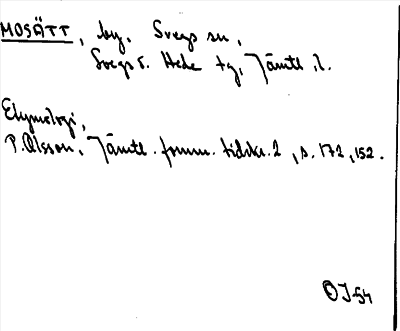 MOSÄTT, by. Svegs sn,
Svegs s. Hede tg, Jämtl. l.
Etymologi,
P. Olsson, Jämtl. fornm. tidskr. 2, s. 172, 152.
OJ 54